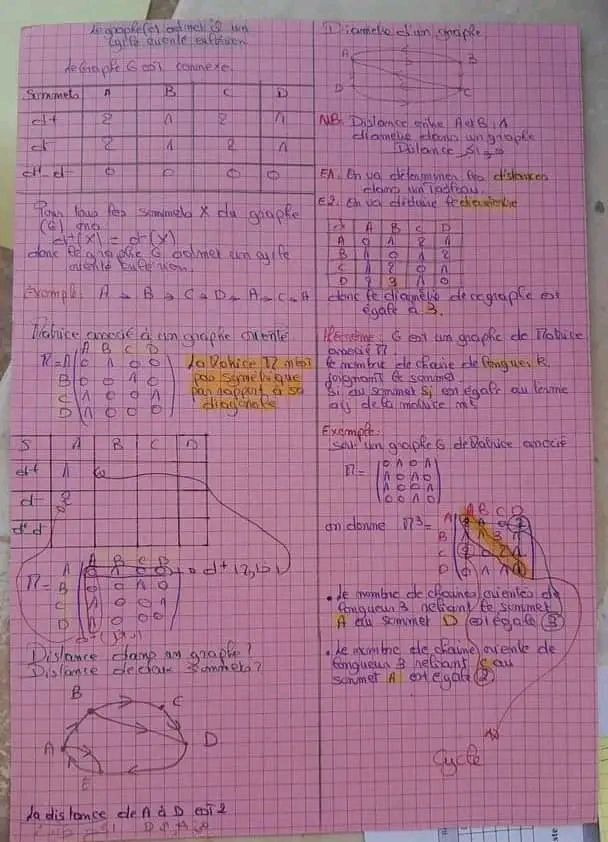 le graphe (G) admet il un
cycle orienté eulérien.
le Graphe G est connexe.
Sommets A B C D
d+ 2 1 2 1
d- 2 1 2 1
d+-d- 0 0 0 0
Pour tous les sommets X du graphe
(G) on a
d+(X) = d-(X)
donc le graphe G admet un cycle
orienté eulérien.
Exemple: A → B → C → D → A → C → A
Matrice associé à un graphe orienté
A B C D
M = A 0 1 0 0
B 0 0 1 0
C 1 0 0 1
D 1 0 0 0
la Matrice M n'est
pas symétrique
par rapport à sa
diagonale
S A B C D
d+ 1
d- 2
d+-d-
A B C D
M = A 0 1 0 0 → d+(A)=1
B 0 0 1 0
C 1 0 0 1
D 1 0 0 0
Distance dans un graphe?
Distance de deux sommets?
B C
A D
E
la distance de A à D est 2
Diamètre d'un graphe
A B
D C
NB: Distance entre A et B: 1
diamètre dans un graphe
Distance
E1: On va déterminer les distances
dans un tableau.
E2: On va déduire le diamètre
d A B C D
A 0 1 2 1
B 1 0 1 2
C 1 2 0 1
D 2 3 1 0
donc le diamètre de ce graphe est
égale à 3.
Théorème: G est un graphe de Matrice
associé M
le nombre de chaine de longueur k
joignant le sommet
Si au sommet Sj est égale au terme
aij de la matrice
Exemple:
Soit un graphe G de Matrice associé
M = 0 1 0 1
1 0 1 0
1 0 0 1
0 0 1 0
on donne M³ =
A B C D
A
B 1 1 3 1
C 2 0 2 1
D 0 1 1 1
• le nombre de chaines orientés de
longueur 3 reliant le sommet
A au sommet D est égale 3
• le nombre de chaine orienté de
longueur 3 reliant C au
sommet A est égale 2
Cycle